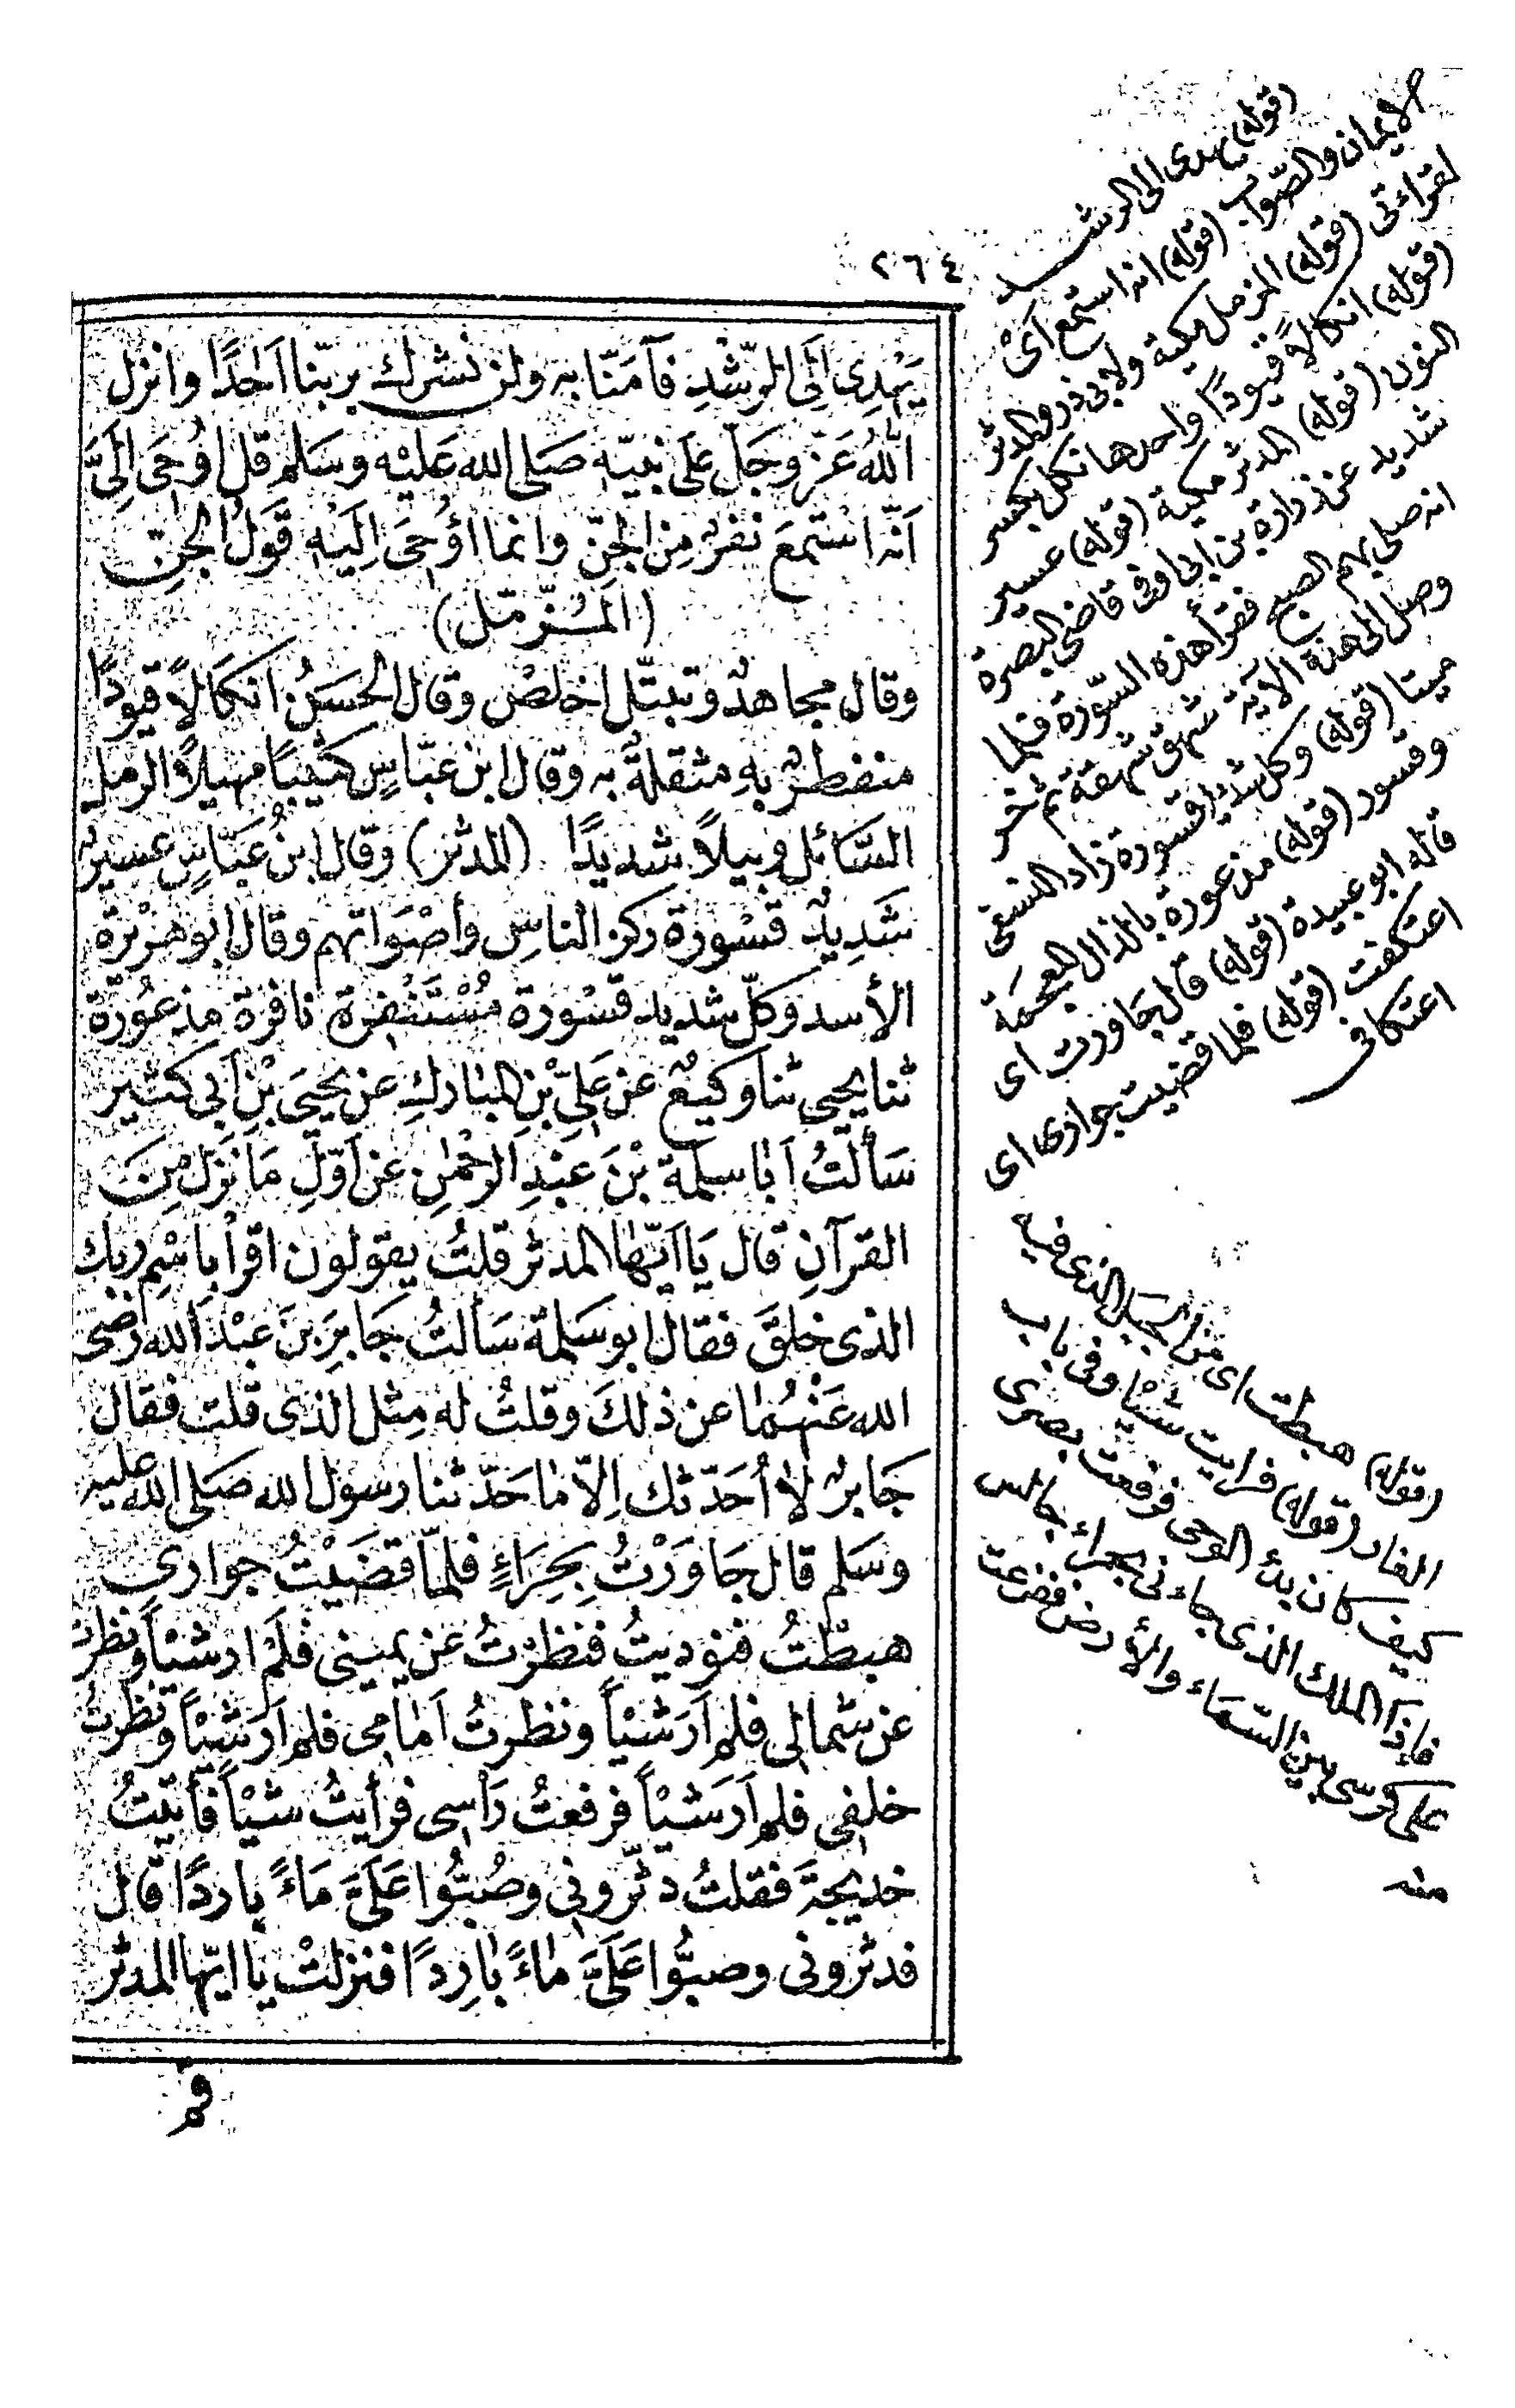 ٢٦٤
يَهْدِى اِلَى الرّشْدِ فَآمَنَّا به ولن نشرك بربّنا اَحَدًا وانزل
اللهُ عَزّ وجَلّ عَلَى نبيّه صَلى الله عَليْه وسَلم قل اُوحَى اِلَىَّ
اَنّه اسْتمعَ نفرٌ مِن الجنّ وانما اُوحَى اِلَيْه قَولُ الجنّ
(المُزّمّل)
وقال مجاهدٌ وتبتّل اخلصْ وقال الحسَنُ انكالاً قيودًا
منفطرٌ بهِ مثقلةٌ به وقال ابن عبّاسٍ كثيبًا مهيلاً الرمل
السّائل وبيلاً شديدًا (المدثر) وقال ابنُ عبّاسٍ عسيرٌ
شَدِيدٌ قسْورَة ركز الناسِ وأصْوَاتهم وقال ابو هرْيرة
الأسد وكلّ شديد قسْورة مُسْتَنْفِرة نافرة مذعُورَة
ثنا يحيى ثنا وكيعٌ عن عَلىّ بْنِ المبَارك عن يحيَى بْنِ اَبى كثير
سَألتُ اَبَا سلمَة بْنَ عبْدِ الرحْمٰنِ عن اَوّلِ مَا نَزل مِنَ
القرآنِ قال يَا اَيّهَا المدثر قلتُ يقولون اقرأ باسْمِ ربك
الذى خلقَ فقال ابو سَلمة سَألتُ جَابِرَ بنَ عبْدَ الله رَضى
الله عَنْهُمَا عن ذلكَ وقلتُ له مِثل الذى قلت فقال
جَابرٌ لا اُحَدّثك اِلّا مَا حَدّثنا رسول الله صَلى الله عليه
وسَلم قال جَاوَرْتُ بحِرَاءٍ فلمّا قضَيْتُ جوارى
هبطتُ فنوديتُ فنظرْتُ عن يمينى فلَمْ ار شيْأً ونظرت
عن شمالى فلم اَرَ شيْأً ونظرتُ اَمَامى فلم اَرَ شيْأً ونظرتُ
خلفى فلم اَرَ شيْأً فرفعتُ رَأسى فرأيتُ شيْأً فأتيتُ
خديجةَ فقلتُ دثّرونى وصُبُّوا عَلَىَّ مَاءً باردًا قال
فدثرونى وصبُّوا عَلَىَّ مَاءً بَارِدًا فنزلتْ يا ايّها المدثر
قم
(قوله) يهدى الى الرشد
الايمان والصّواب (قوله) انه استمع اَىْ
لقراءتى (قوله) المزمل مكية ولابى ذر والمدثر
(قوله) انكالاً قيودًا واحدها نكل بكسر
النون (قوله) المدثر مكية (قوله) عسير
شديد عن زرارة بن ابى اوفى قاضى البصرة
انه صلى بهم الصبح فقرأ هذه السّورة فلما
وصل الى هذه الآية شهق شهقة ثم خر
ميتا (قوله) وكل شديد قسورة زاد النسفى
وقسور (قوله) مذعورة بالذال المعجَمة
قاله ابو عبيدة (قوله) قال جَاورت اى
اعتكفت (قوله) فلما قضيت جوارى اى
اعتكافى
(قوله) هبطت اى من الجبل الذى فيه
الغار (قوله) فرايت شيْأ وفى باب
كيف كان بدْأ الوحى فرفعت بصرى
فاذا الملك الذى جاءنى بحراء جالس
على كرسى بين السّماء والأرض ففزعت
منه